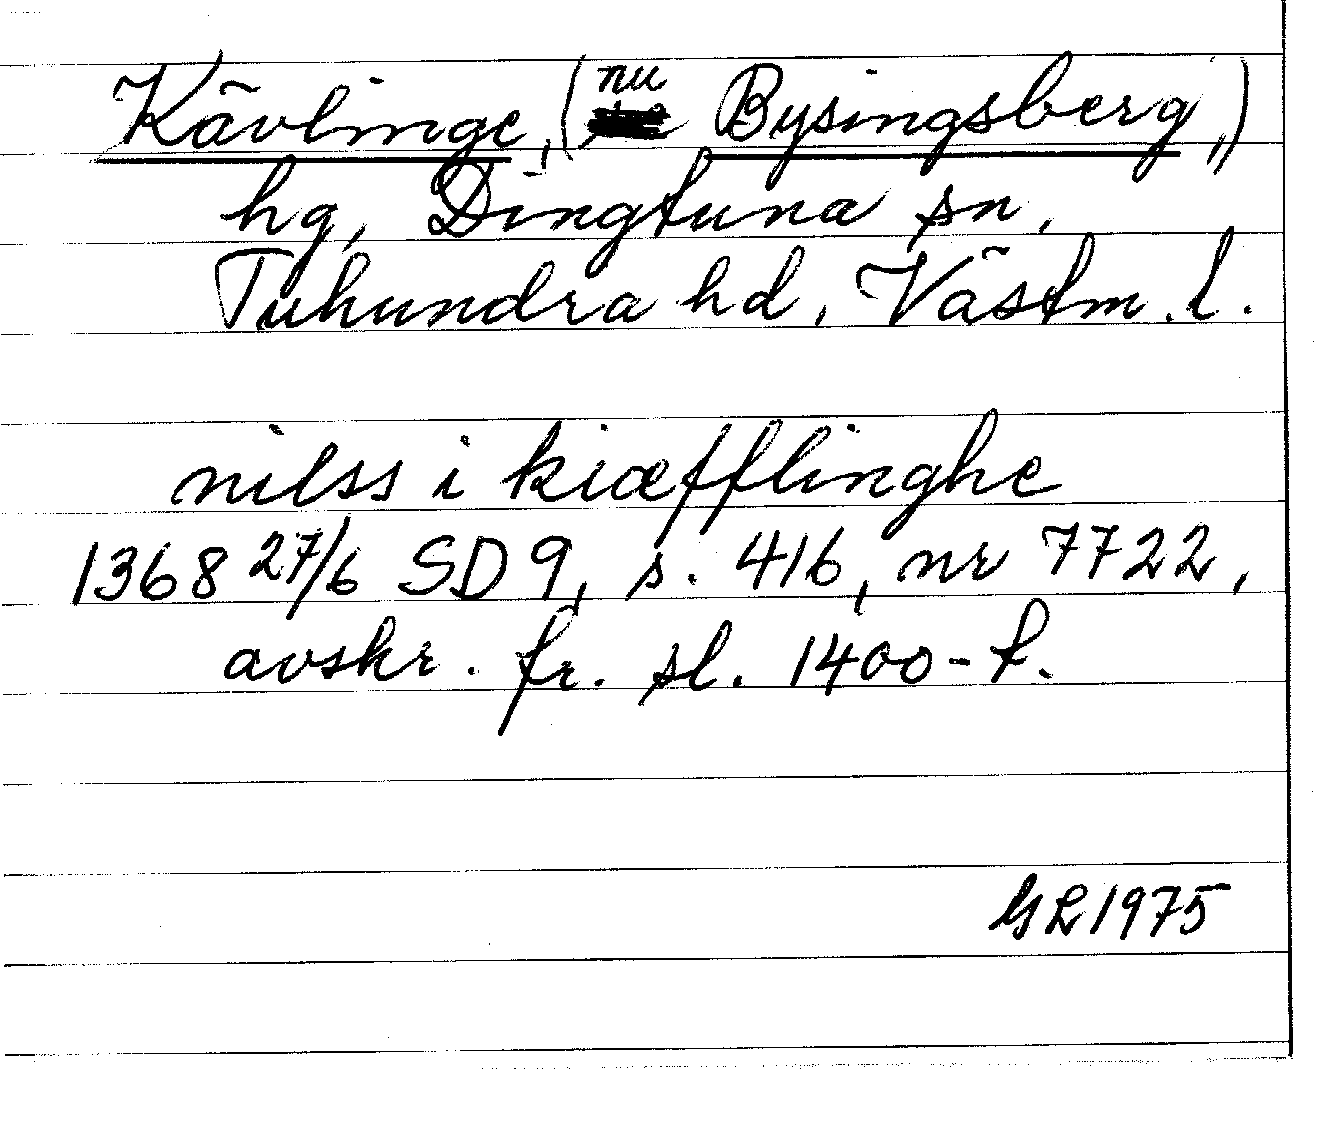 Kävlinge, (nu Bysingsberg,)
hg, Dingtuna sn,
Tuhundra hd, Västm. l.
nilss i kiæfflinghe
1368 27/6 SD 9, s. 416, nr 7722,
avskr. fr. sl. 1400-t.
GL 1975